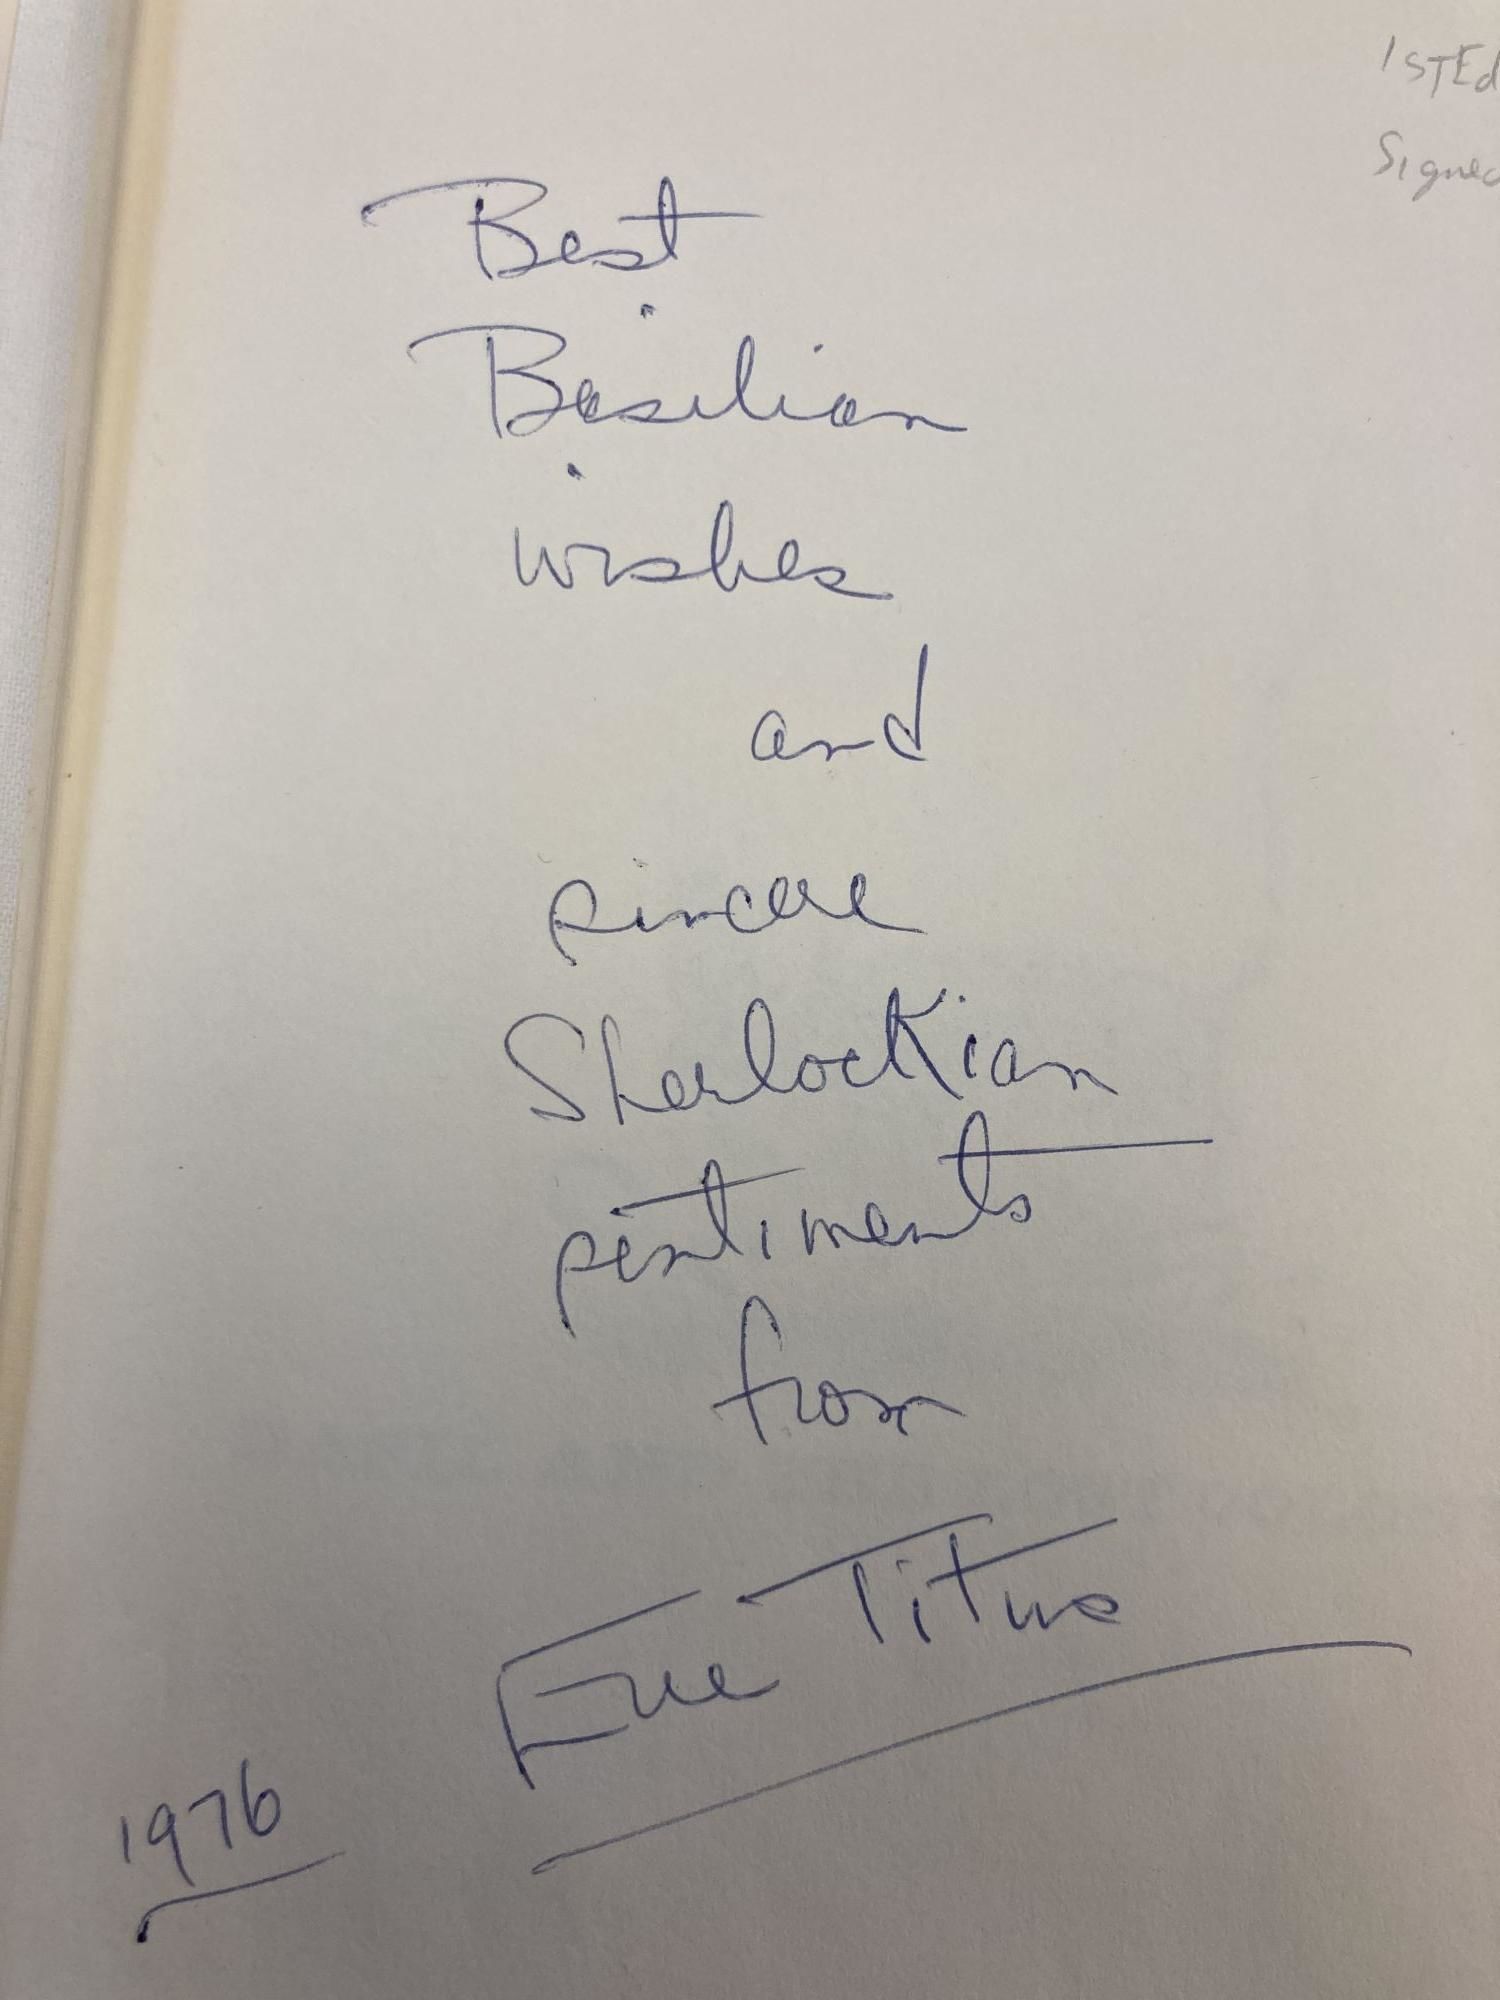 1STEd
Signed
Best
Basilian
wishes
and
sincere
Sherlockian
sentiments
from
Eve Titus
1976